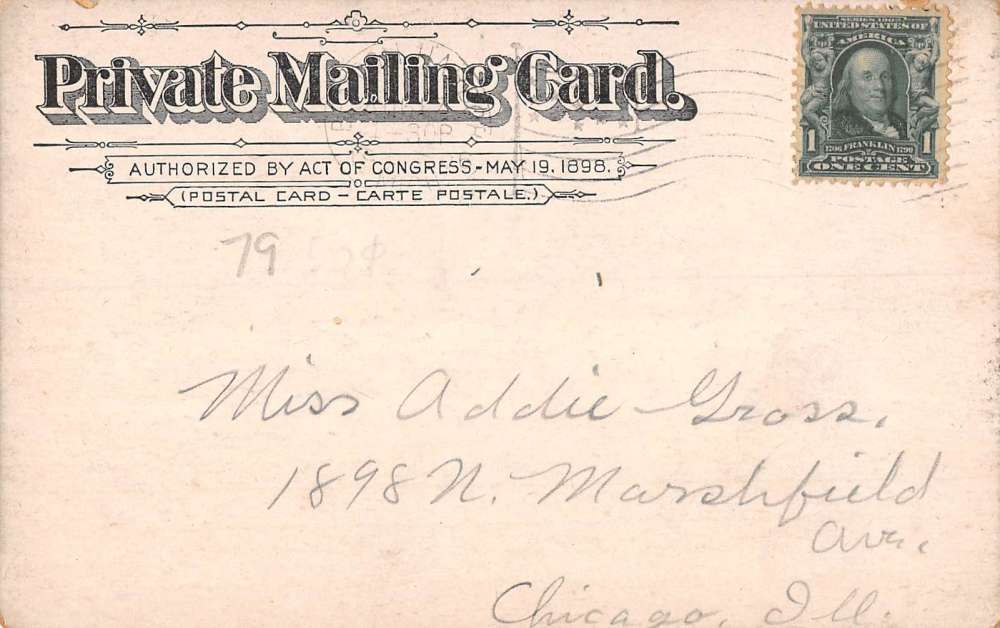 Private Mailing Card.
AUTHORIZED BY ACT OF CONGRESS - MAY 19. 1898.
(POSTAL CARD - CARTE POSTALE.)
SERIES 1902
UNITED STATES OF
AMERICA
1 FRANKLIN 1
POSTAGE
ONE CENT
79
Miss Addie Gross,
1898 N. Marshfield
Ave.,
Chicago, Ill.